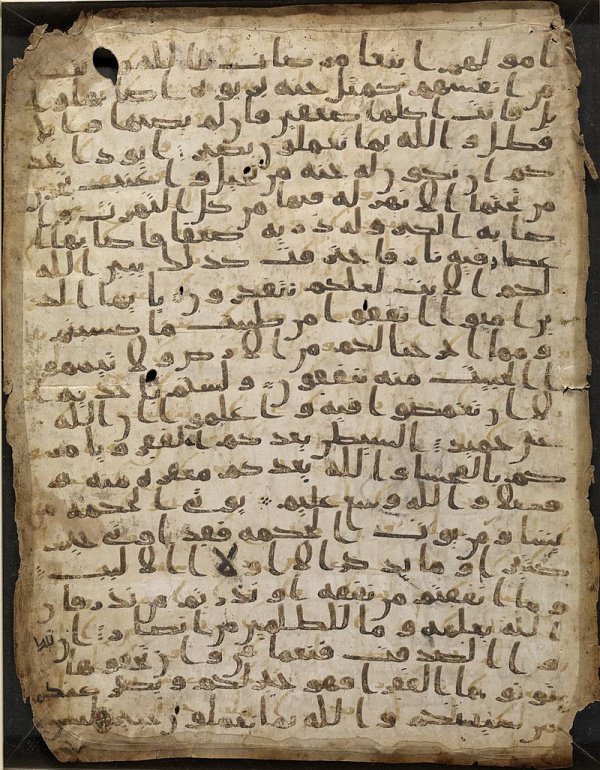 امولهم ابتغا مرضات الله وتثبيتا
من انفسهم كمثل جنه بربوه اصابها وا
بل فاتت اكلها ضعفين فان لم يصبها وابل
فطل والله بما تعملون بصير ايود احد
كم ان تكون له جنه من نخيل واعنب تجري
من تحتها الانهر له فيها من كل الثمرت وا
صابه الكبر وله ذريه ضعفا فاصابها ا
عصار فيه نار فاحترقت كذلك يبين الله
لكم الايت لعلكم تتفكرون يايها الذ
ين امنوا انفقوا من طيبت ما كسبتم
ومما اخرجنا لكم من الارض ولا تيممو
ا الخبيث منه تنفقون ولستم باخذيه ا
لا ان تغمضوا فيه واعلموا ان الله
غني حميد الشيطن يعدكم الفقر ويامر
كم بالفحشا والله يعدكم مغفره منه و
فضلا والله وسع عليم يوتي الحكمه من
يشا ومن يوت الحكمه فقد اوتي خيرا
كثيرا وما يذكر الا اولا الالبب
وما انفقتم من نفقه او نذرتم من نذر فان
الله يعلمه وما للظلمين من انصار ان
تبدوا الصدقت فنعما هي وان تخفوها
وتوتوها الفقرا فهو خير لكم ويكفر عنكم
من سيتكم والله بما تعملون خبير ليس